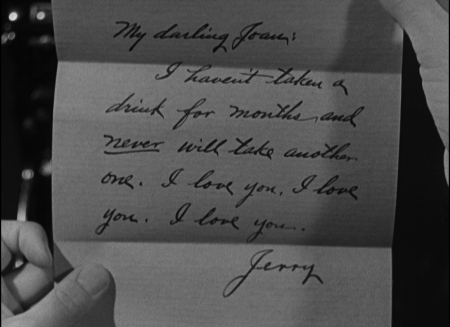 My darling Joan:
I haven't taken a
drink for months, and
never will take another
one. I love you. I love
you. I love you.
Jerry